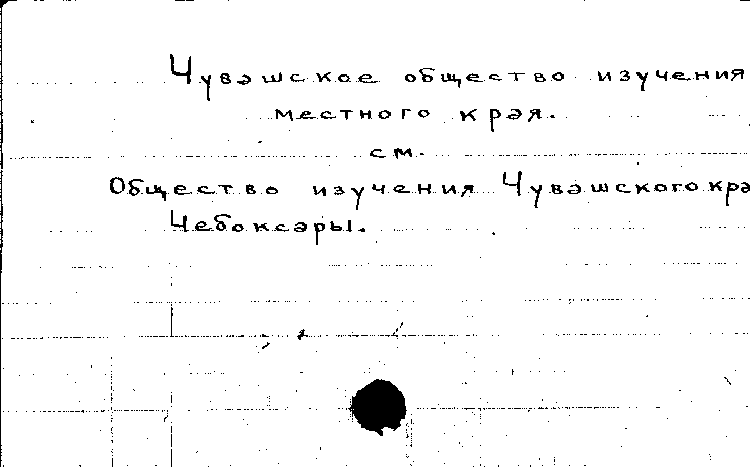 Чувашское общество изучения
местного края.
см.
Общество изучения Чувашского кра
Чебоксары.